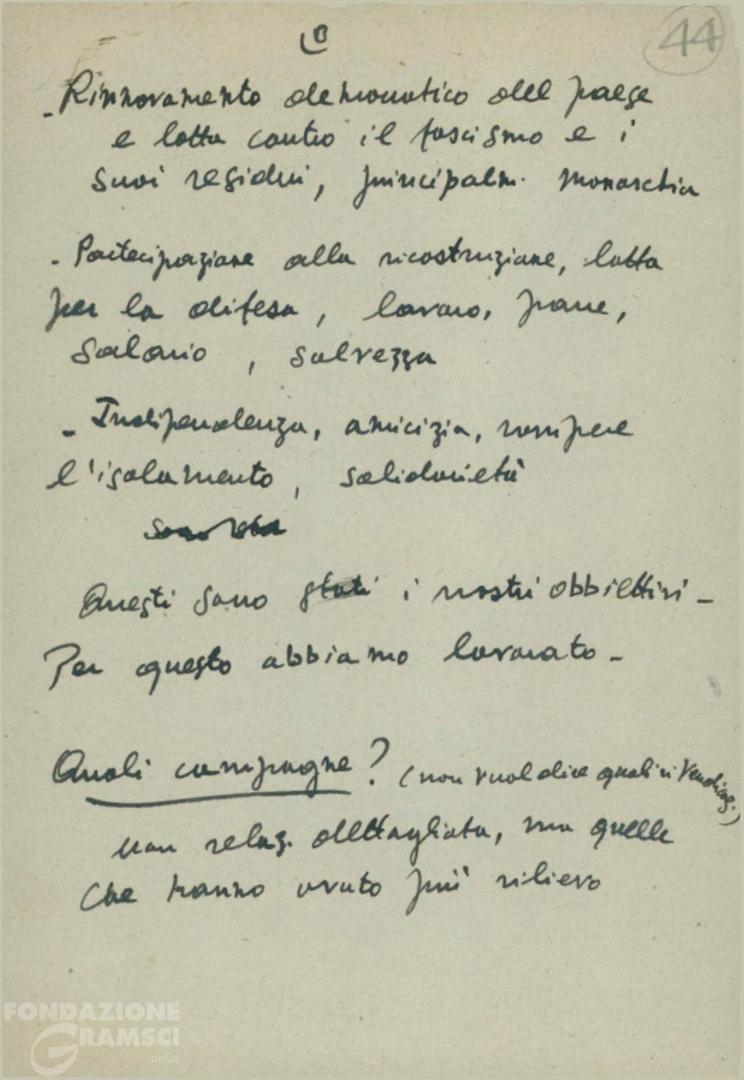 44
- Rinnovamento democratico del paese
e lotta contro il fascismo e i
suoi residui, principalm. monarchia
- Partecipazione alla ricostruzione, lotta
per la difesa, lavoro, pane,
salario, salvezza
- Indipendenza, amicizia, rompere
l'isolamento, solidarietà
Questi sono stati i nostri obbiettivi -
Per questo abbiamo lavorato -
Quali campagne? (non vuol dire quali
non relaz. dettagliata, ma quelle
che hanno avuto più rilievo
FONDAZIONE
GRAMSCI
onlus